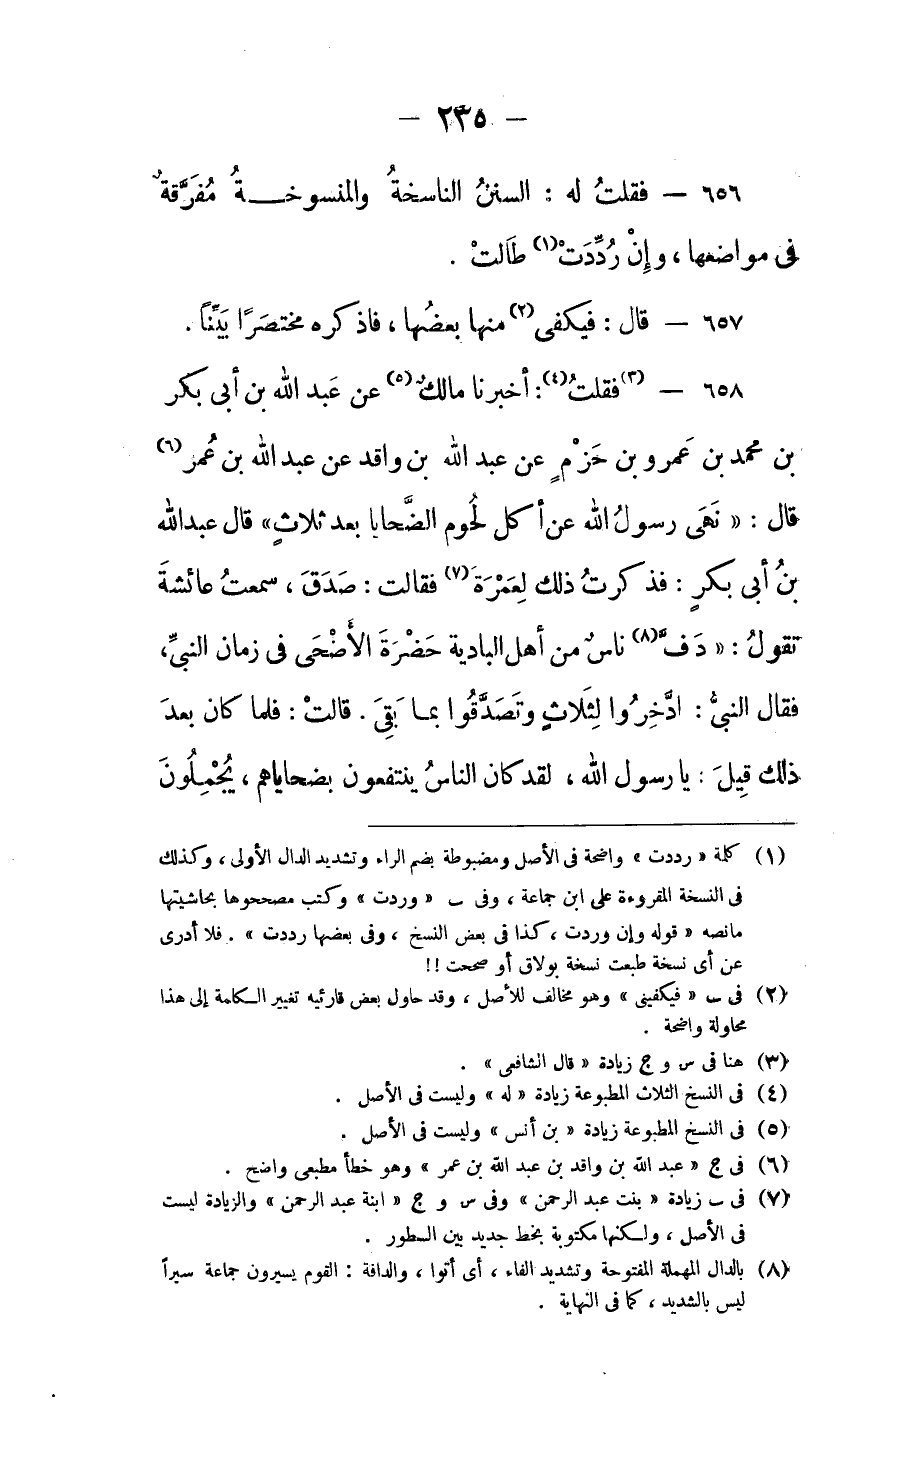 — ٢٣٥ —
٦٥٦ — فقلتُ له : السننُ الناسخةُ والمنسوخةُ مُفَرَّقةٌ
فى مواضعها ، وإنْ رُدِّدَتْ(١) طَالتْ .
٦٥٧ — قال : فيكفى(٢) منها بعضُها ، فاذكره مختصَرًا بَيِّنًا .
٦٥٨ — (٣)فقلتُ(٤) : أخبرنا مالكٌ(٥) عن عَبد الله بن أبى بكر
بن محمد بن عَمرو بن حَزْمٍ عن عبد الله بن واقد عن عبد الله بن عُمر(٦)
قال : « نَهَى رسولُ الله عن أكل لُحوم الضَّحايا بعد ثلاثٍ» قال عبدالله
بنُ أبى بكرٍ : فذكرتُ ذلك لِعَمْرَةَ(٧) فقالت : صَدَقَ ، سمعتُ عائشةَ
تقولُ : « دَفَّ(٨) ناسٌ من أهل البادية حَضْرَةَ الأَضْحَى فى زمان النبىِّ،
فقال النبىُّ : ادَّخِرُوا لِثَلاثٍ وتَصَدَّقُوا بما بَقِىَ . قالتْ : فلما كان بعدَ
ذلك قِيلَ : يا رسول الله ، لقد كان الناسُ ينتفعون بضحاياهم ، يُجْمِلُونَ
(١) كلمة « رددت » واضحة فى الأصل ومضبوطة بضم الراء وتشديد الدال الأولى ، وكذلك
فى النسخة المقروءة على ابن جماعة ، وفى ب « وردت » وكتب مصححوها بحاشيتها
مانصه « قوله وإن وردت ، كذا فى بعض النسخ ، وفى بعضها رددت » . فلا أدرى
عن أى نسخة طبعت نسخة بولاق أو صححت !!
(٢) فى ب « فيكفينى » وهو مخالف للأصل ، وقد حاول بعض قارئيه تغيير الكلمة إلى هذا
محاولة واضحة .
(٣) هنا فى س و ج زيادة « قال الشافعى » .
(٤) فى النسخ الثلاث المطبوعة زيادة « له » وليست فى الأصل .
(٥) فى النسخ المطبوعة زيادة « بن أنس » وليست فى الأصل .
(٦) فى ج « عبد الله بن واقد بن عبد الله بن عمر » وهو خطأ مطبعى واضح .
(٧) فى ب زيادة « بنت عبد الرحمن » وفى س و ج « ابنة عبد الرحمن » والزيادة ليست
فى الأصل ، ولكنها مكتوبة بخط جديد بين السطور .
(٨) بالدال المهملة المفتوحة وتشديد الفاء ، أى أتوا ، والدافة : القوم يسيرون جماعة سيراً
ليس بالشديد ، كما فى النهاية .